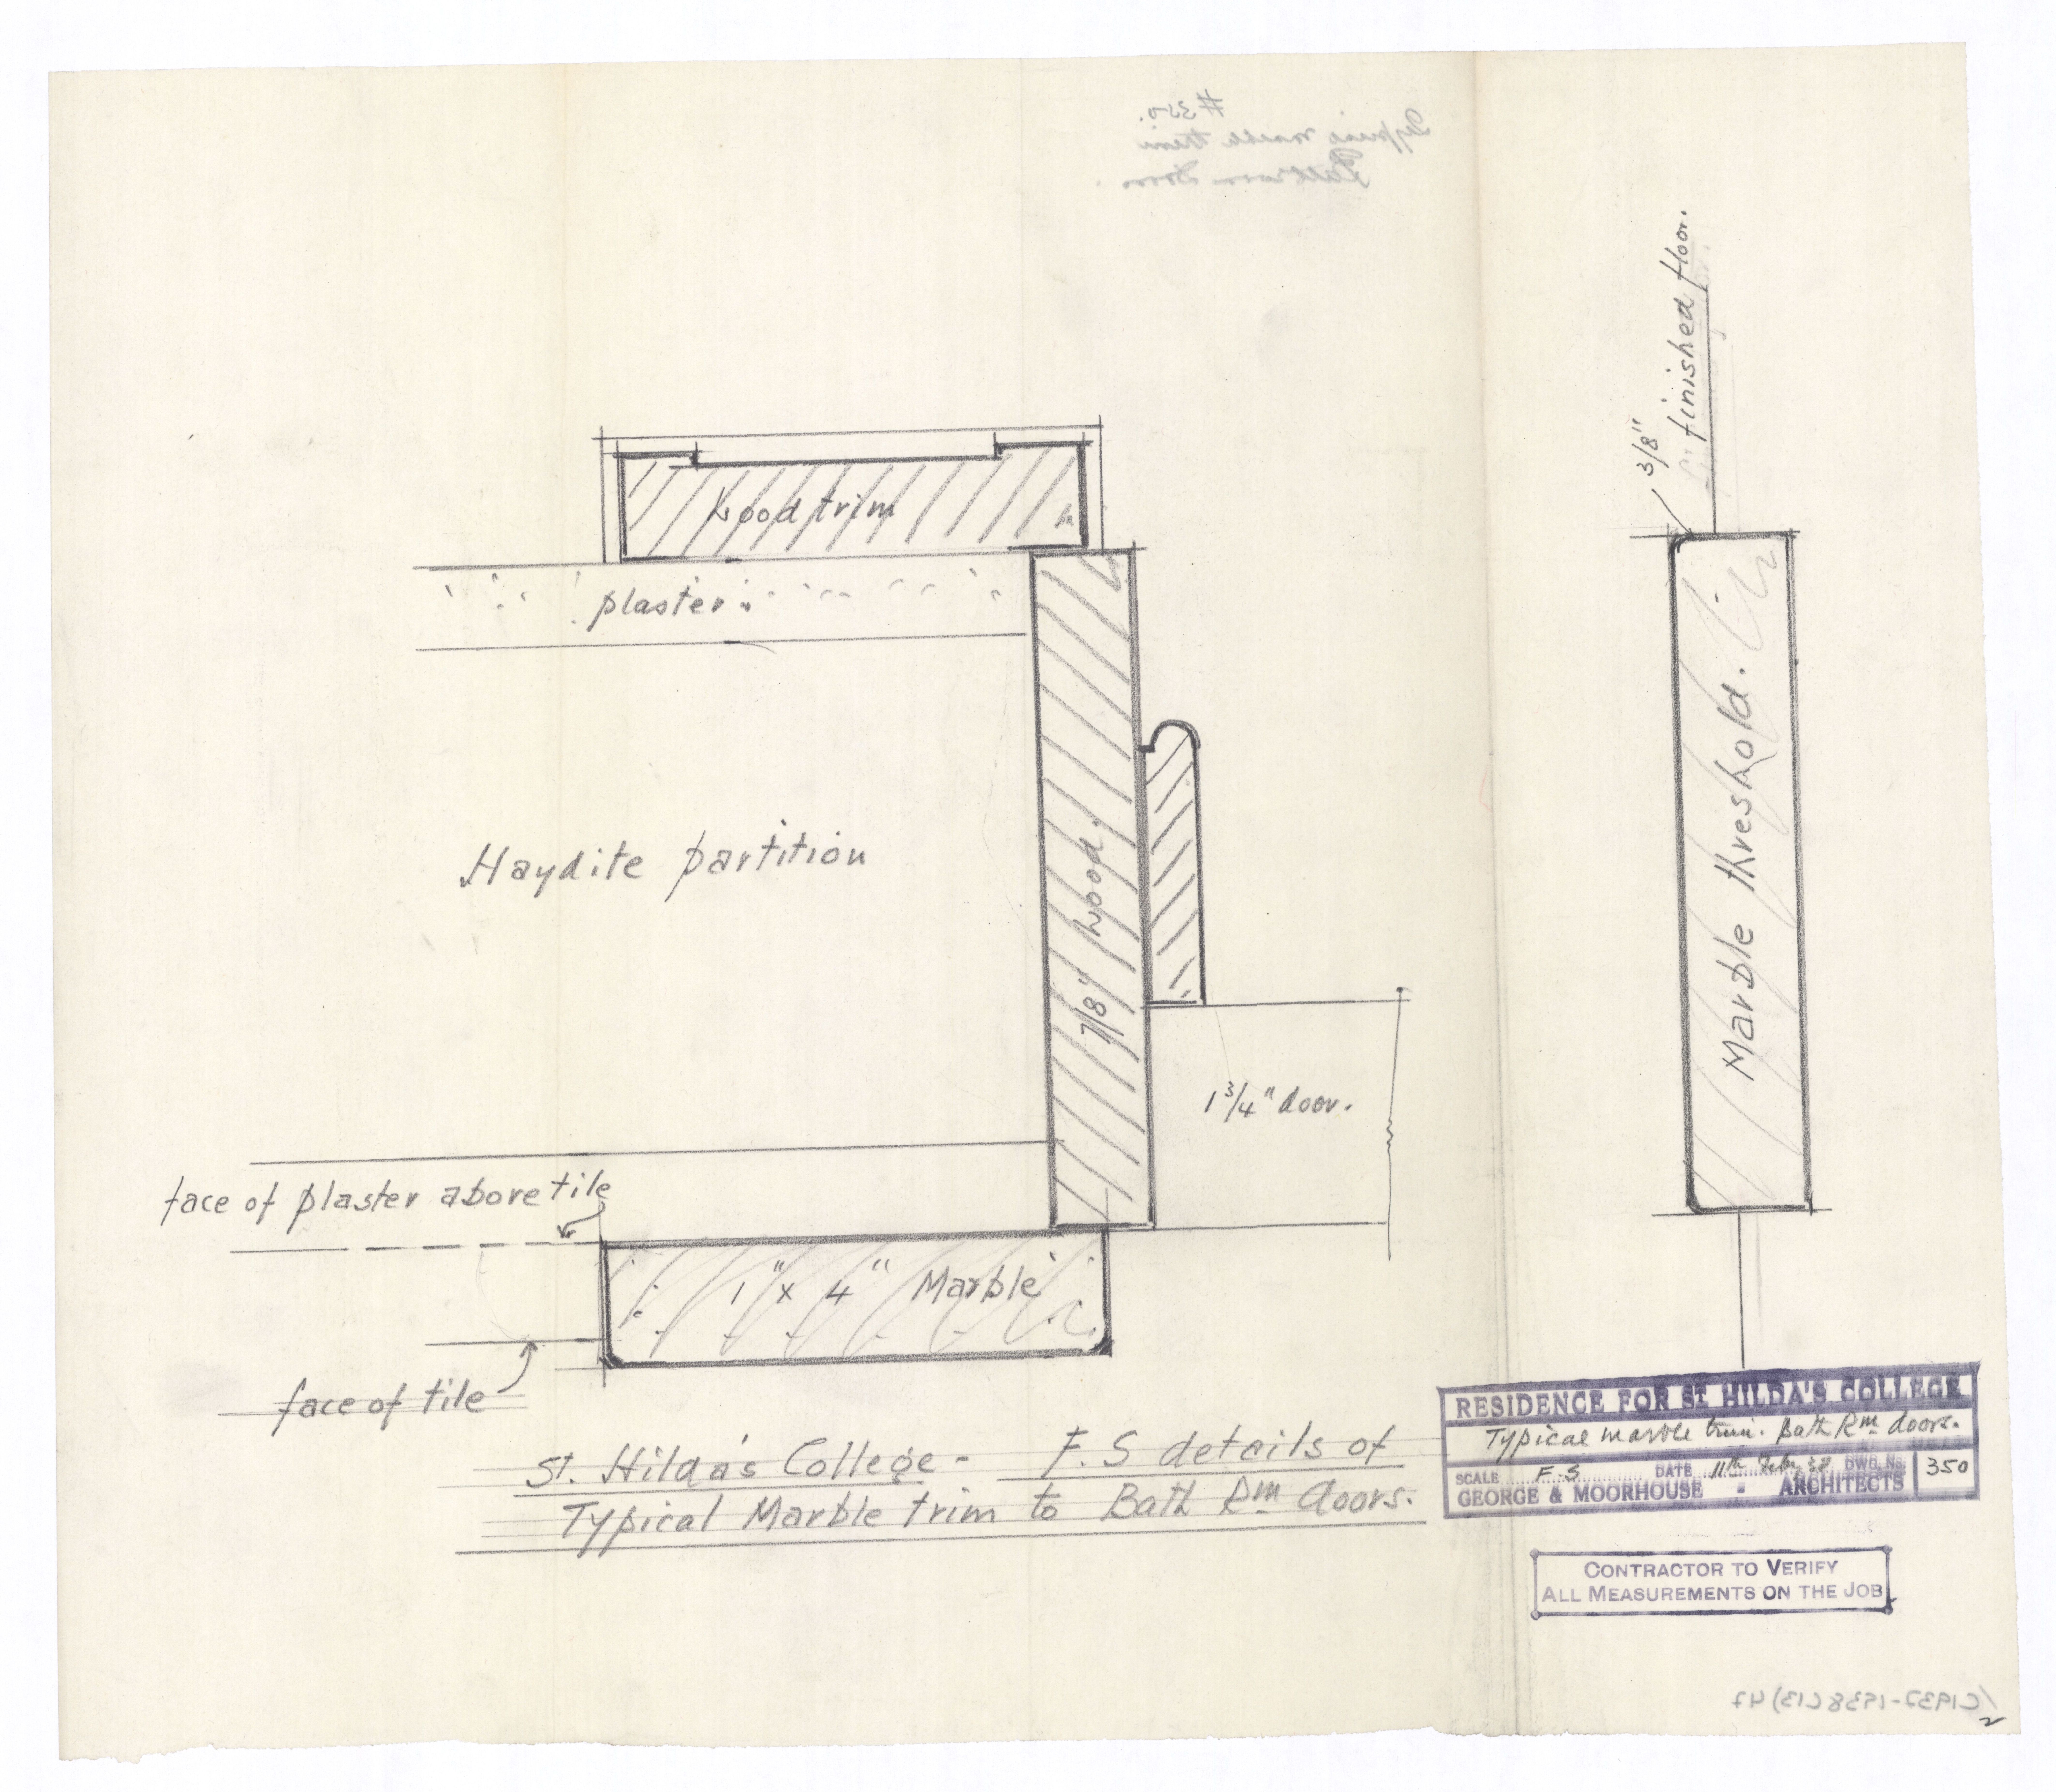 #350.
3/8"
finished floor.
Wood trim
plaster.
Haydite partition
7/8" Wood.
Marble threshold.
1 3/4" door.
face of plaster above tile
1" x 4" Marble
face of tile
St. Hilda's College - F.S details of
Typical Marble trim to Bath Rm doors.
RESIDENCE FOR ST. HILDA'S COLLEGE
Typical marble trim. Bath Rm doors.
SCALE F.S DATE 11th Feby 38 DWG. No. 350
GEORGE & MOORHOUSE - ARCHITECTS
CONTRACTOR TO VERIFY
ALL MEASUREMENTS ON THE JOB